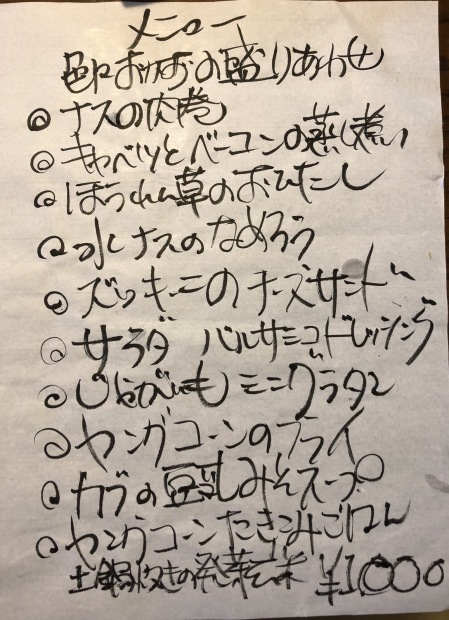 メニュー
色々おかずの盛りあわせ
◎ ナスの肉巻
◎ キャベツとベーコンの蒸し煮
◎ ほうれん草のおひたし
◎ 水ナスのなめろう
◎ ズッキーニのチーズサンド
◎ サラダ バルサミコドレッシング
◎ じゃがいもミニグラタン
◎ ヤングコーンのフライ
◎ カブの豆乳みそスープ
◎ ヤングコーンたきこみごはん
土鍋炊きの発芽玄米 ¥1,000